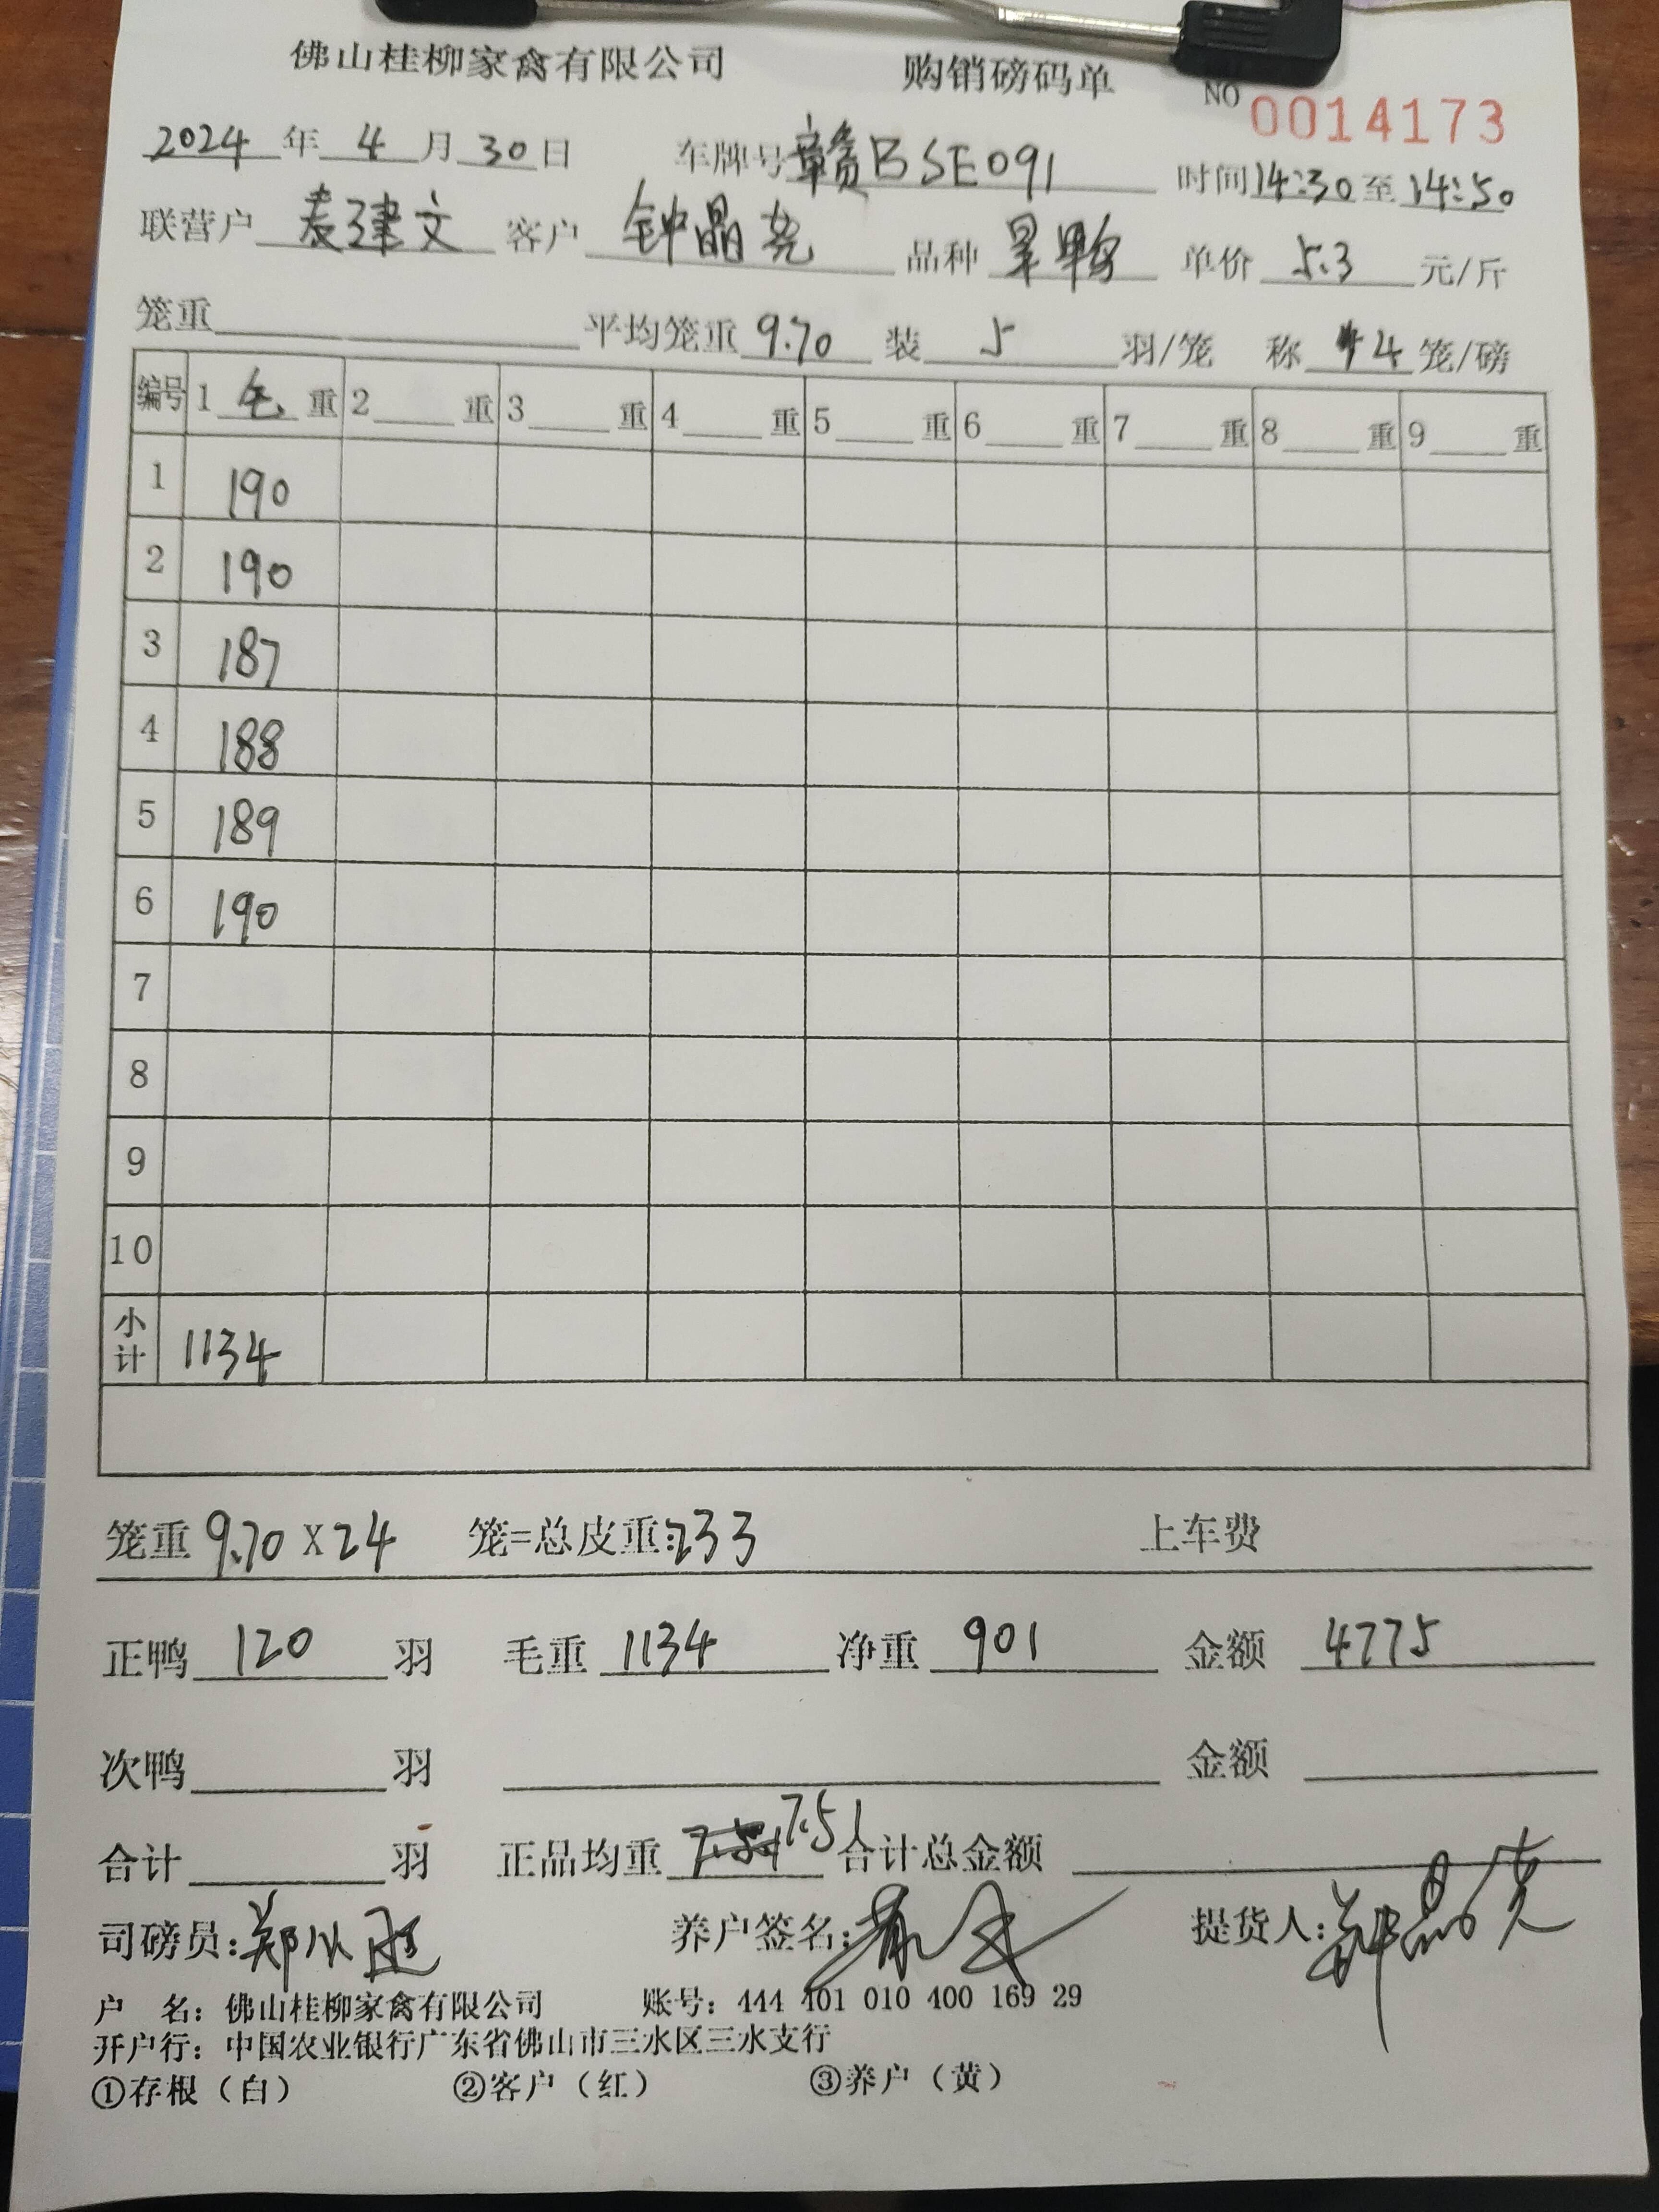 佛山桂柳家禽有限公司 购销磅码单 NO 0014173
2024年4月30日 车牌号赣BSE091 时间14:30至14:50
联营户 麦建文 客户 钟晶尧 品种 旱鸭 单价 5.3 元/斤
笼重 平均笼重 9.70 装 5 羽/笼 称 4 笼/磅
编号 1 毛 重 2 重 3 重 4 重 5 重 6 重 7 重 8 重 9 重
1 190
2 190
3 187
4 188
5 189
6 190
7
8
9
10
小计 1134
笼重 9.70 X 24 笼=总皮重:233 上车费
正鸭 120 羽 毛重 1134 净重 901 金额 4775
次鸭 羽 金额
合计 羽 正品均重 7.51 合计总金额
司磅员: 养户签名: 提货人:
户 名：佛山桂柳家禽有限公司 账号：444 401 010 400 169 29
开户行：中国农业银行广东省佛山市三水区三水支行
①存根（白） ②客户（红） ③养户（黄）